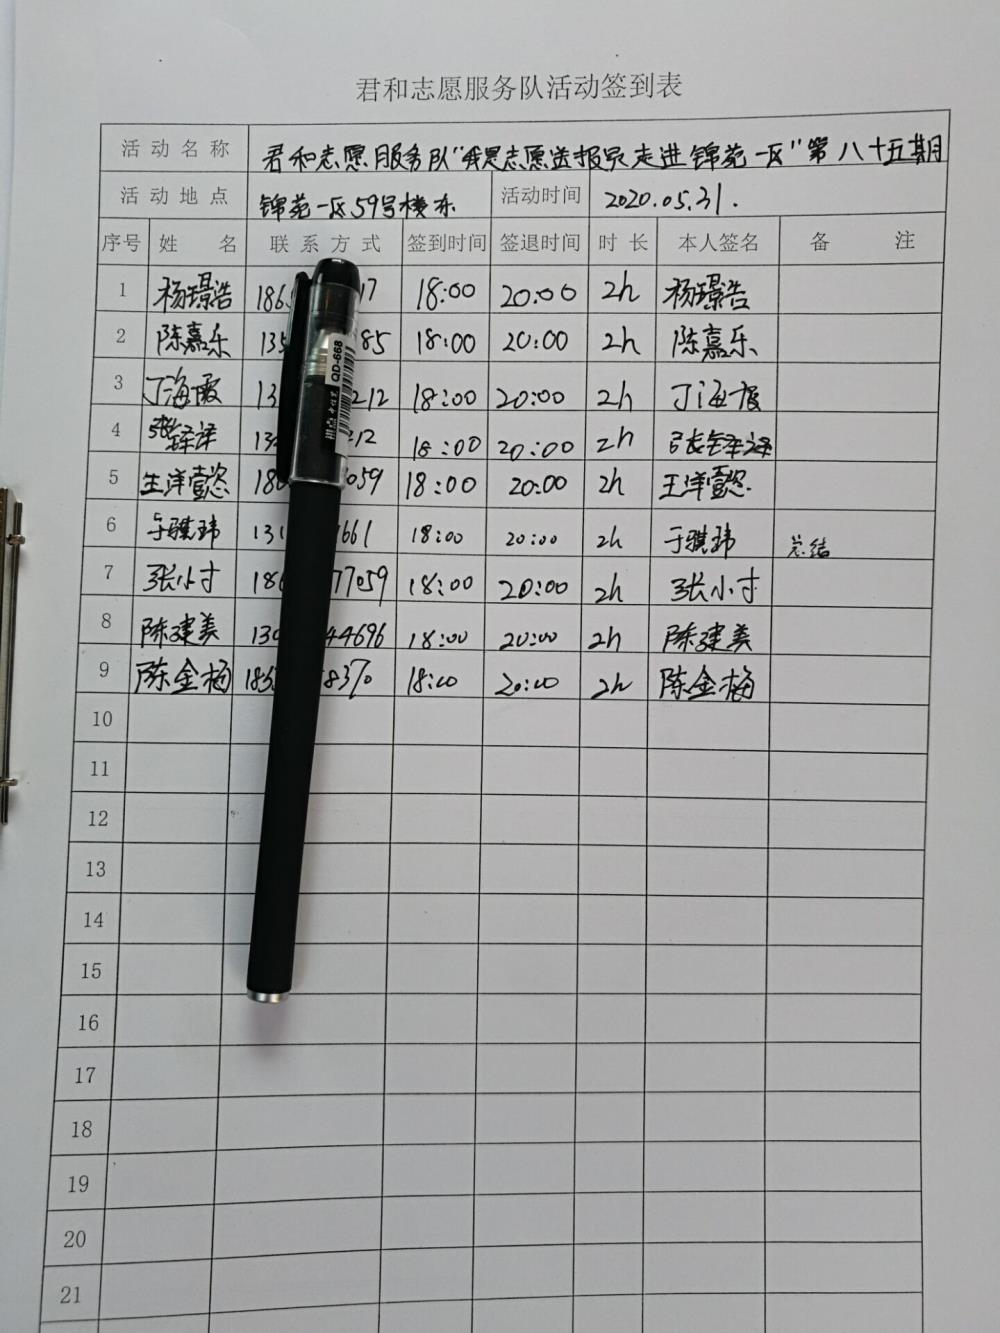 君和志愿服务队活动签到表
活动名称 君和志愿服务队"我是志愿送报员走进锦苑一区"第八十五期
活动地点 锦苑一区59号楼东 活动时间 2020.05.31.
序号 姓名 联系方式 签到时间 签退时间 时长 本人签名 备注
1 杨璟浩 186 17 18:00 20:00 2h 杨璟浩
2 陈嘉乐 135 85 18:00 20:00 2h 陈嘉乐
3 丁海霞 13 212 18:00 20:00 2h 丁海霞
4 张铎译 13 212 18:00 20:00 2h 张铎译
5 王洋壹恣 180 059 18:00 20:00 2h 王洋壹恣
6 于骐玮 131 661 18:00 20:00 2h 于骐玮 总结
7 张小寸 186 77059 18:00 20:00 2h 张小寸
8 陈建美 130 44696 18:00 20:00 2h 陈建美
9 陈金梅 186 8370 18:00 20:00 2h 陈金梅
10
11
12
13
14
15
16
17
18
19
20
21
QD-668